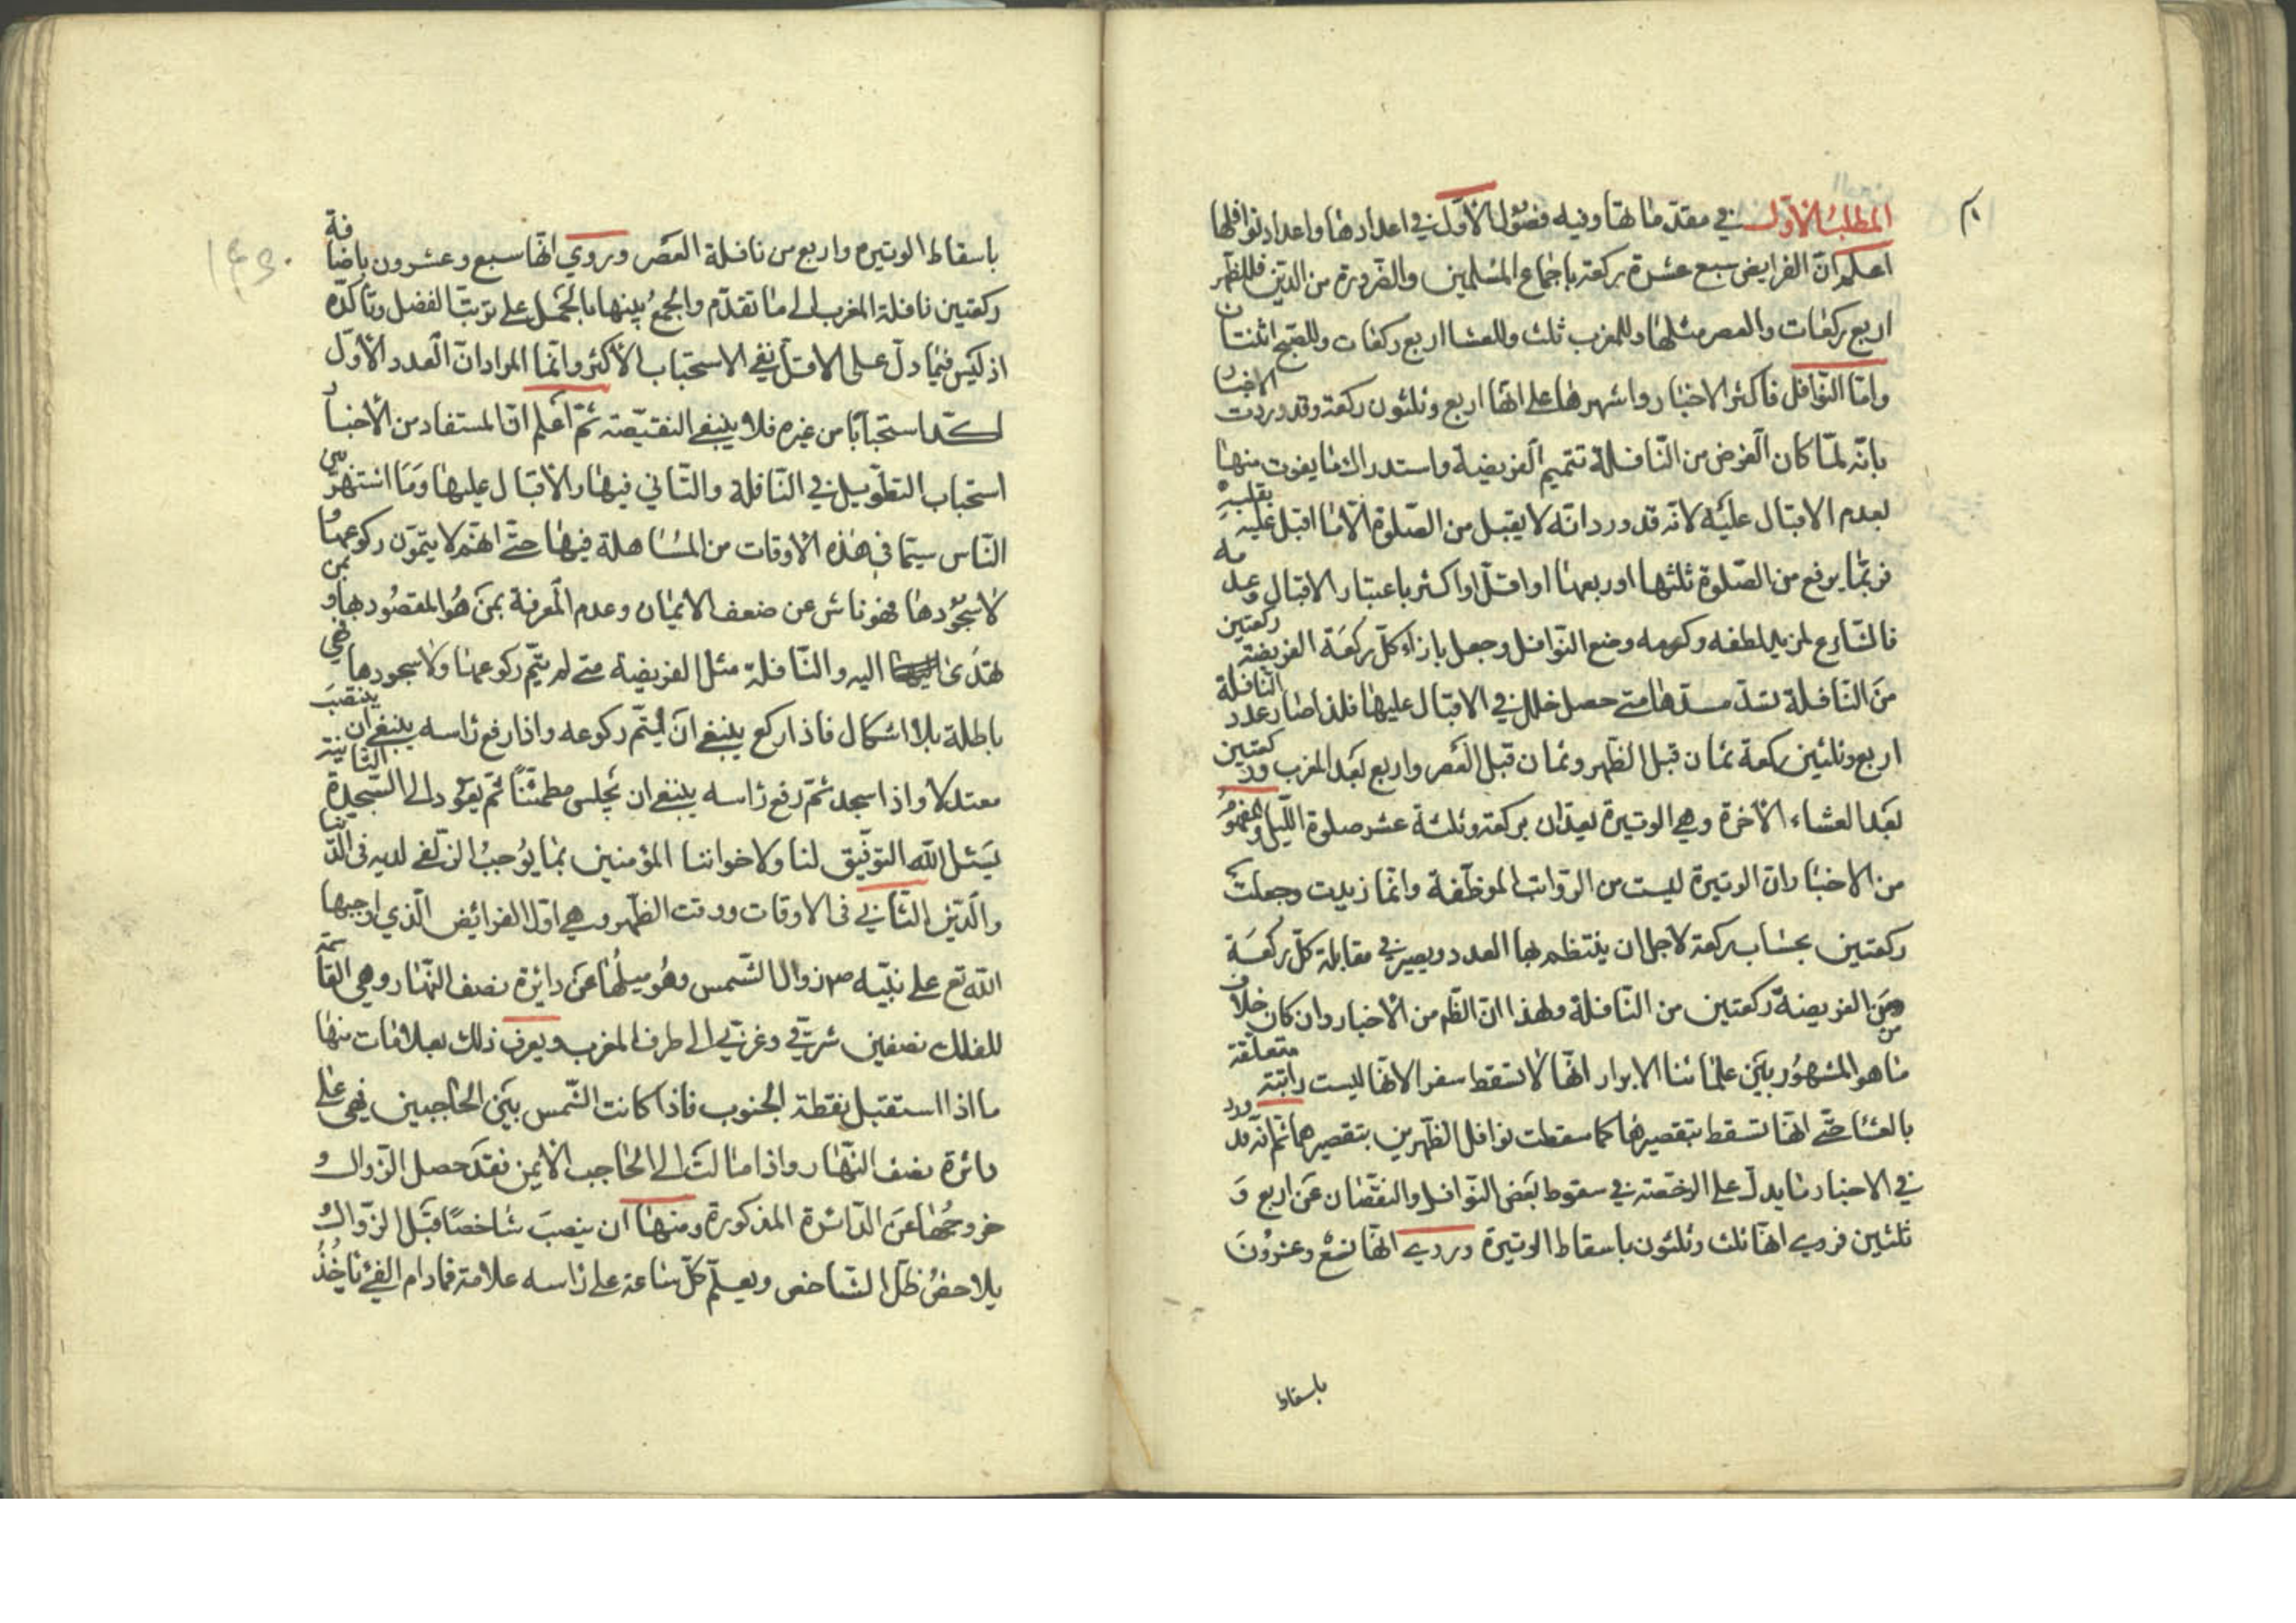 المطلب الأول في مقدماتها وفيه فصول الأول في اعدادها واعداد نوافلها
اعلم ان الفرايض سبع عشرة ركعة باجماع المسلمين والضرورة من الدين فللظهر
اربع ركعات والعصر مثلها وللمغرب ثلث وللعشا اربع ركعات وللصبح اثنتان
واما النوافل فاكثر الاخبار واشهرها على انها اربع وثلثون ركعة وقد وردت الاخبار
بانه لما كان الغرض من النافلة تتميم الفريضة واستدراك ما يفوت منها
لعدم الاقبال عليه لانه قد ورد انه لا يقبل من الصلوة الا ما اقبل عليه بقلبه
فربما يرفع من الصلوة ثلثها او ربعها او اقل او اكثر باعتبار الاقبال وعدمه
فالشارع لمزيد لطفه وكرمه وضع النوافل وجعل بازاء كل ركعة الفريضة ركعتين
من النافلة تسد مسدها متى حصل خلل في الاقبال عليها فلذا صار عدد النافلة
اربع وثلثين ركعة ثمان قبل الظهر وثمان قبل العصر واربع بعد المغرب وركعتين
بعد العشاء الآخرة وهي الوتيرة تعدان بركعة وثلثة عشر صلوة الليل والمفهوم
من الاخبار ان الوتيرة ليست من الرواتب الموظفة وانما زيدت وجعلت
ركعتين بحساب ركعة لاجل ان ينتظم بها العدد ويصير في مقابلة كل ركعة
من الفريضة ركعتين من النافلة ولهذا ان الظ من الاخبار وان كان خلاف
ما هو المشهور بين علمائنا الابرار انها لا تسقط سفرا لانها ليست راتبة متعلقة
بالعشا حتى انها تسقط بتقصيرها كما سقطت نوافل الظهرين بتقصيرهما ثم انه قد ورد
في الاخبار ما يدل على الرخصة في سقوط بعض النوافل والنقصان عن اربع و
ثلثين فروي انها ثلث وثلثون باسقاط الوتيرة وروي انها تسع وعشرون
باسقاط
باسقاط الوتيره واربع من نافلة العصر وروي انها سبع وعشرون باضافة
ركعتين نافلة المغرب الى ما تقدم والجمع بينها بالحمل على ترتب الفضل وتأكده
اذ ليس فيما دل على الاقل نفي الاستحباب الاكثر وانما المراد ان العدد الأول
اكد استحبابا من غيره فلا ينبغي النقيصة ثم اعلم ان المستفاد من الأخبار
استحباب التطويل في النافلة والتاني فيها والاقبال عليها وما اشتهر بين
الناس سيما في هذه الاوقات من المساهلة فيها حتى انهم لا يتمون ركوعها و
لا سجودها فهو ناش عن ضعف الايمان وعدم المعرفة بمن هو المقصود بها وبمن
تهدى اليه والنافلة مثل الفريضة متى لم يتم ركوعها ولا سجودها فهي
باطلة بلا اشكال فاذا ركع ينبغي ان يتم ركوعه واذا رفع رأسه ينبغي ان ينتصب
معتدلا واذا سجد ثم رفع رأسه ينبغي ان يجلس مطمئنا ثم يعود الى السجدة الثانية
يسئل الله التوفيق لنا ولاخواننا المؤمنين بما يوجب الزلفى لديه في الدنيا
والدين الثاني في الاوقات ووقت الظهر وهي اول الفرائض الذي اوجبها
الله تع على نبيه ص زوال الشمس وهو ميلها عن دائرة نصف النهار وهي القاسمة
للفلك نصفين شرقي وغربي الى طرف المغرب ويعرف ذلك بعلامات منها
ما اذا استقبل نقطة الجنوب فاذا كانت الشمس بين الحاجبين فهي على
دائرة نصف النهار واذا مالت الى الحاجب الايمن فقد حصل الزوال و
خروجها عن الدائرة المذكورة ومنها ان ينصب شاخصا قبل الزوال و
يلاحض ظل الشاخص ويعلم كل ساعة على رأسه علامة فمادام الفئ يأخذ